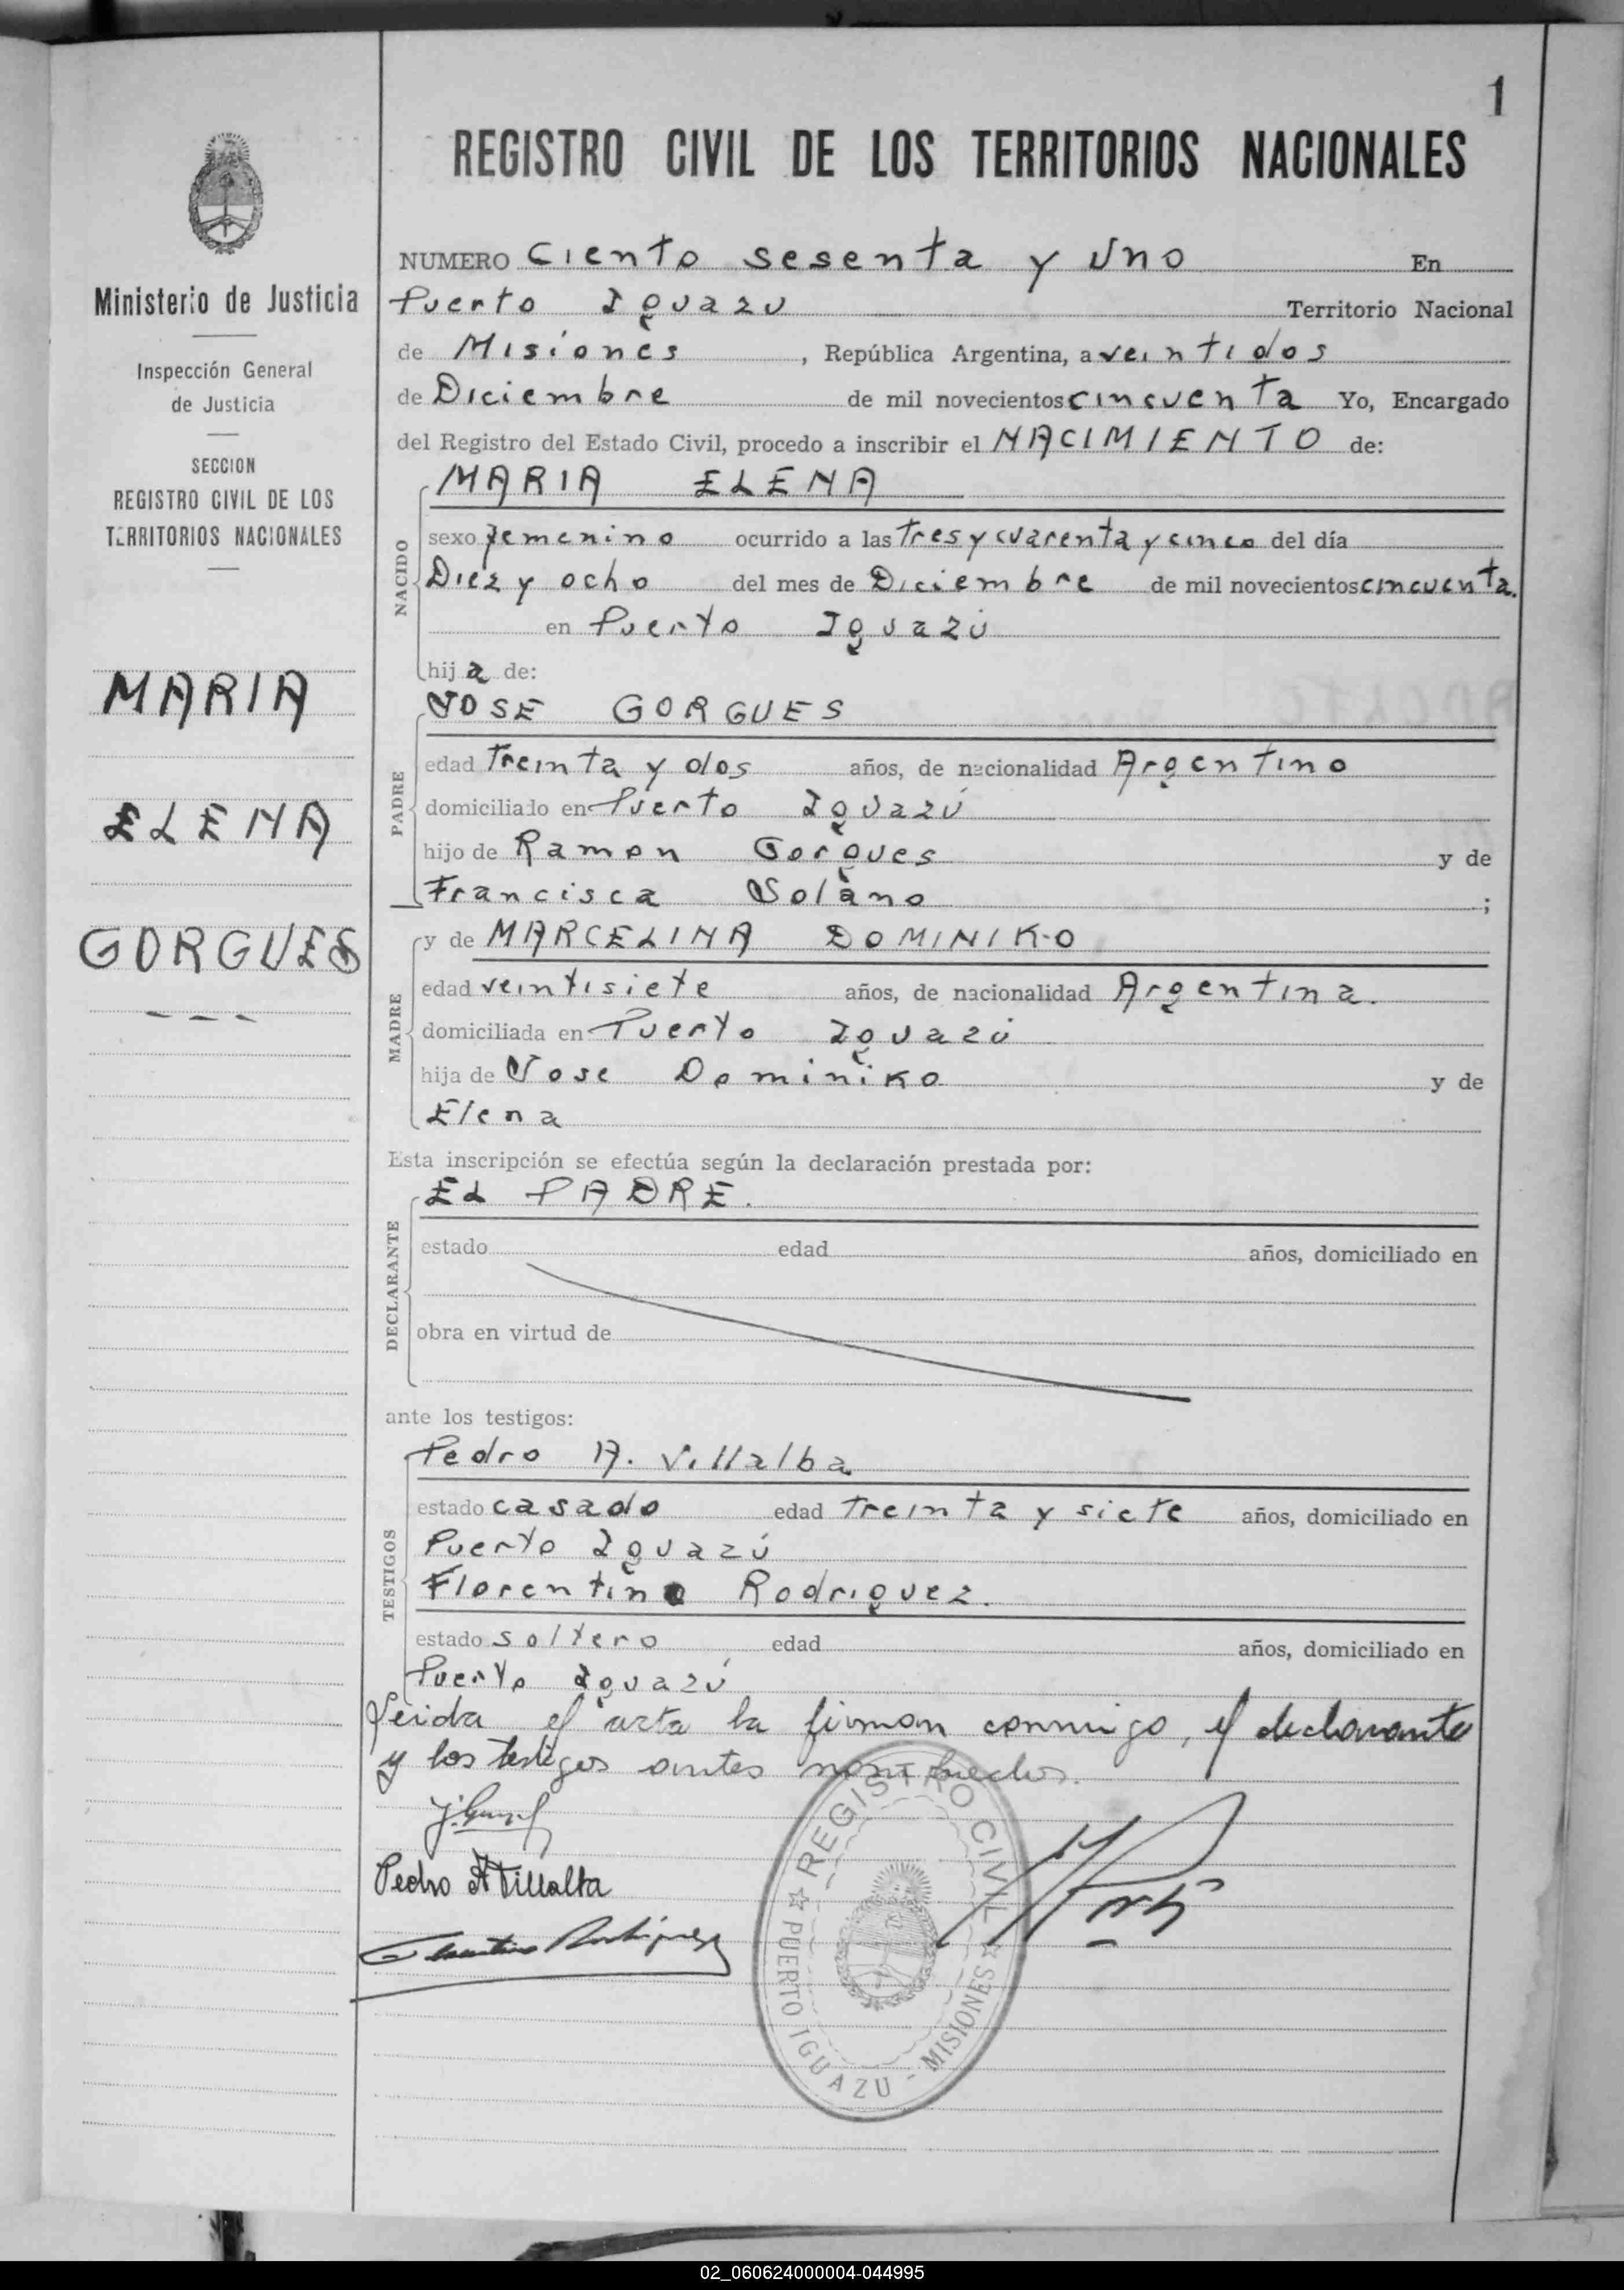 1
REGISTRO CIVIL DE LOS TERRITORIOS NACIONALES
Ministerio de Justicia
Inspección General
de Justicia
SECCION
REGISTRO CIVIL DE LOS
TERRITORIOS NACIONALES
MARIA
ELENA
GORGUES
NUMERO Ciento sesenta y Uno En
Puerto Iguazu Territorio Nacional
de Misiones, República Argentina, a veintidos
de Diciembre de mil novecientos cincuenta Yo, Encargado
del Registro del Estado Civil, procedo a inscribir el NACIMIENTO de:
NACIDO
MARIA ELENA
sexo femenino ocurrido a las tres y cuarenta y cinco del día
Diez y ocho del mes de Diciembre de mil novecientos cincuenta.
en Puerto Iguazú
hija de:
PADRE
JOSE GORGUES
edad Treinta y dos años, de nacionalidad Argentino
domiciliado en Puerto Iguazú
hijo de Ramon Gorgues y de
Francisca Solano ;
MADRE
y de MARCELINA DOMINIKO
edad veintisiete años, de nacionalidad Argentina.
domiciliada en Puerto Iguazú
hija de Jose Dominiko y de
Elena
Esta inscripción se efectúa según la declaración prestada por:
DECLARANTE
EL PADRE.
estado edad años, domiciliado en
obra en virtud de
ante los testigos:
TESTIGOS
Pedro A. Villalba
estado casado edad Treinta y siete años, domiciliado en
Puerto Iguazú
Florentino Rodriguez.
estado soltero edad años, domiciliado en
Puerto Iguazú
Leida el acta la firman conmigo, el declarante
y los testigos antes nombrados.
Pedro A Villalba
Florentino Rodriguez
REGISTRO CIVIL
PUERTO IGUAZU - MISIONES
02_060624000004-044995